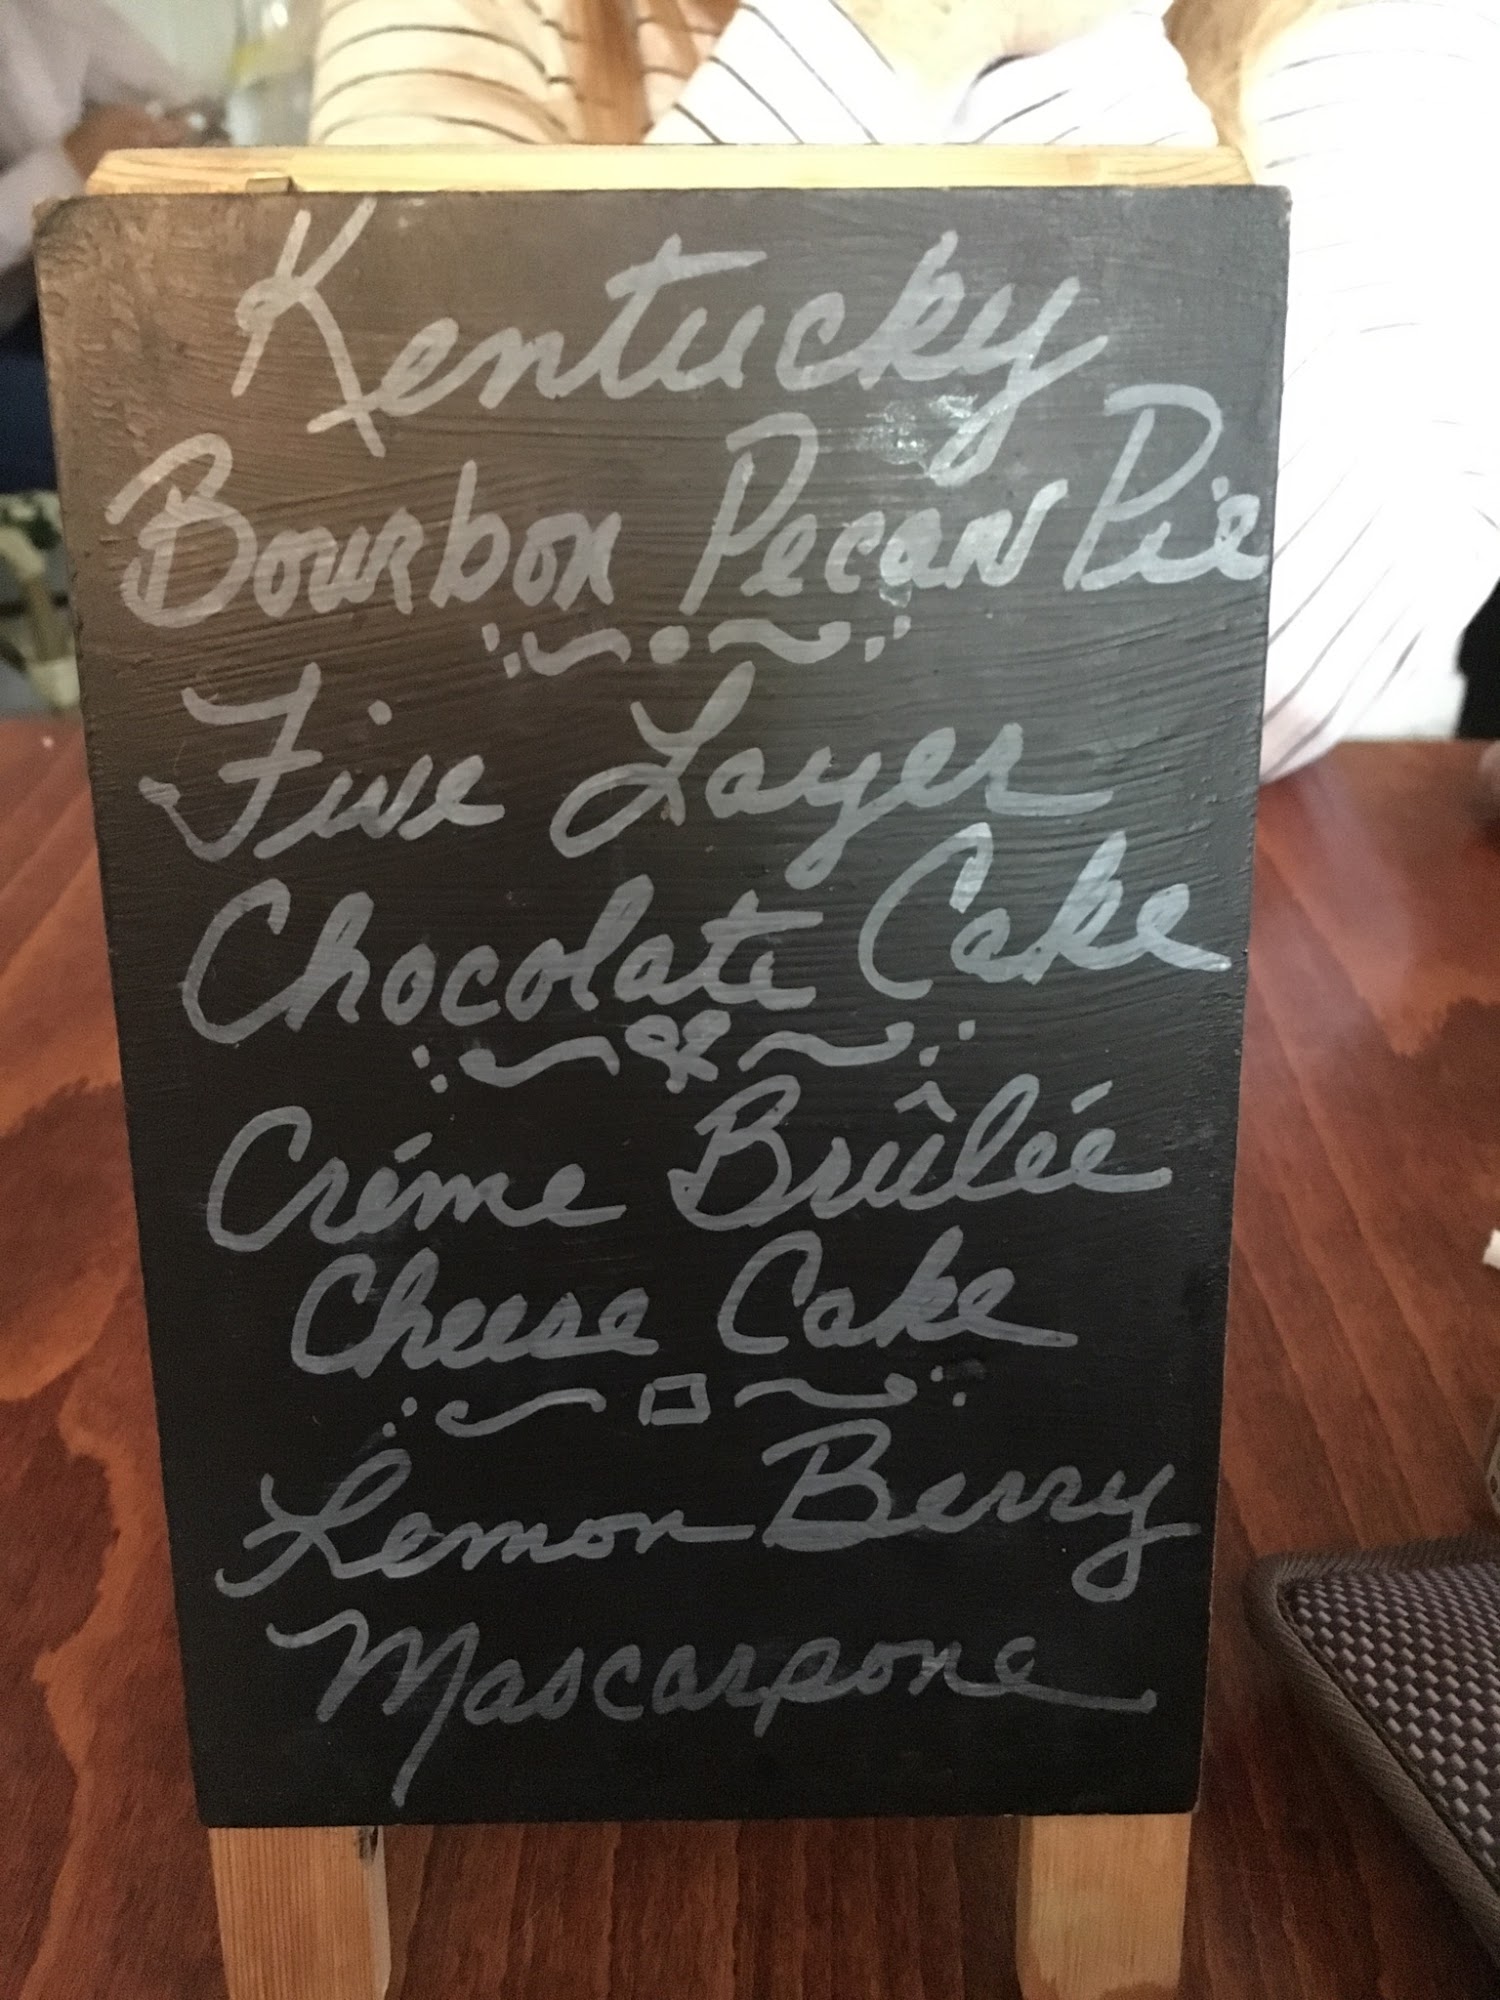 Kentucky
Bourbon Pecan Pie
Five Layer
Chocolate Cake
Créme Brûlée
Cheese Cake
Lemon Berry
Mascarpone